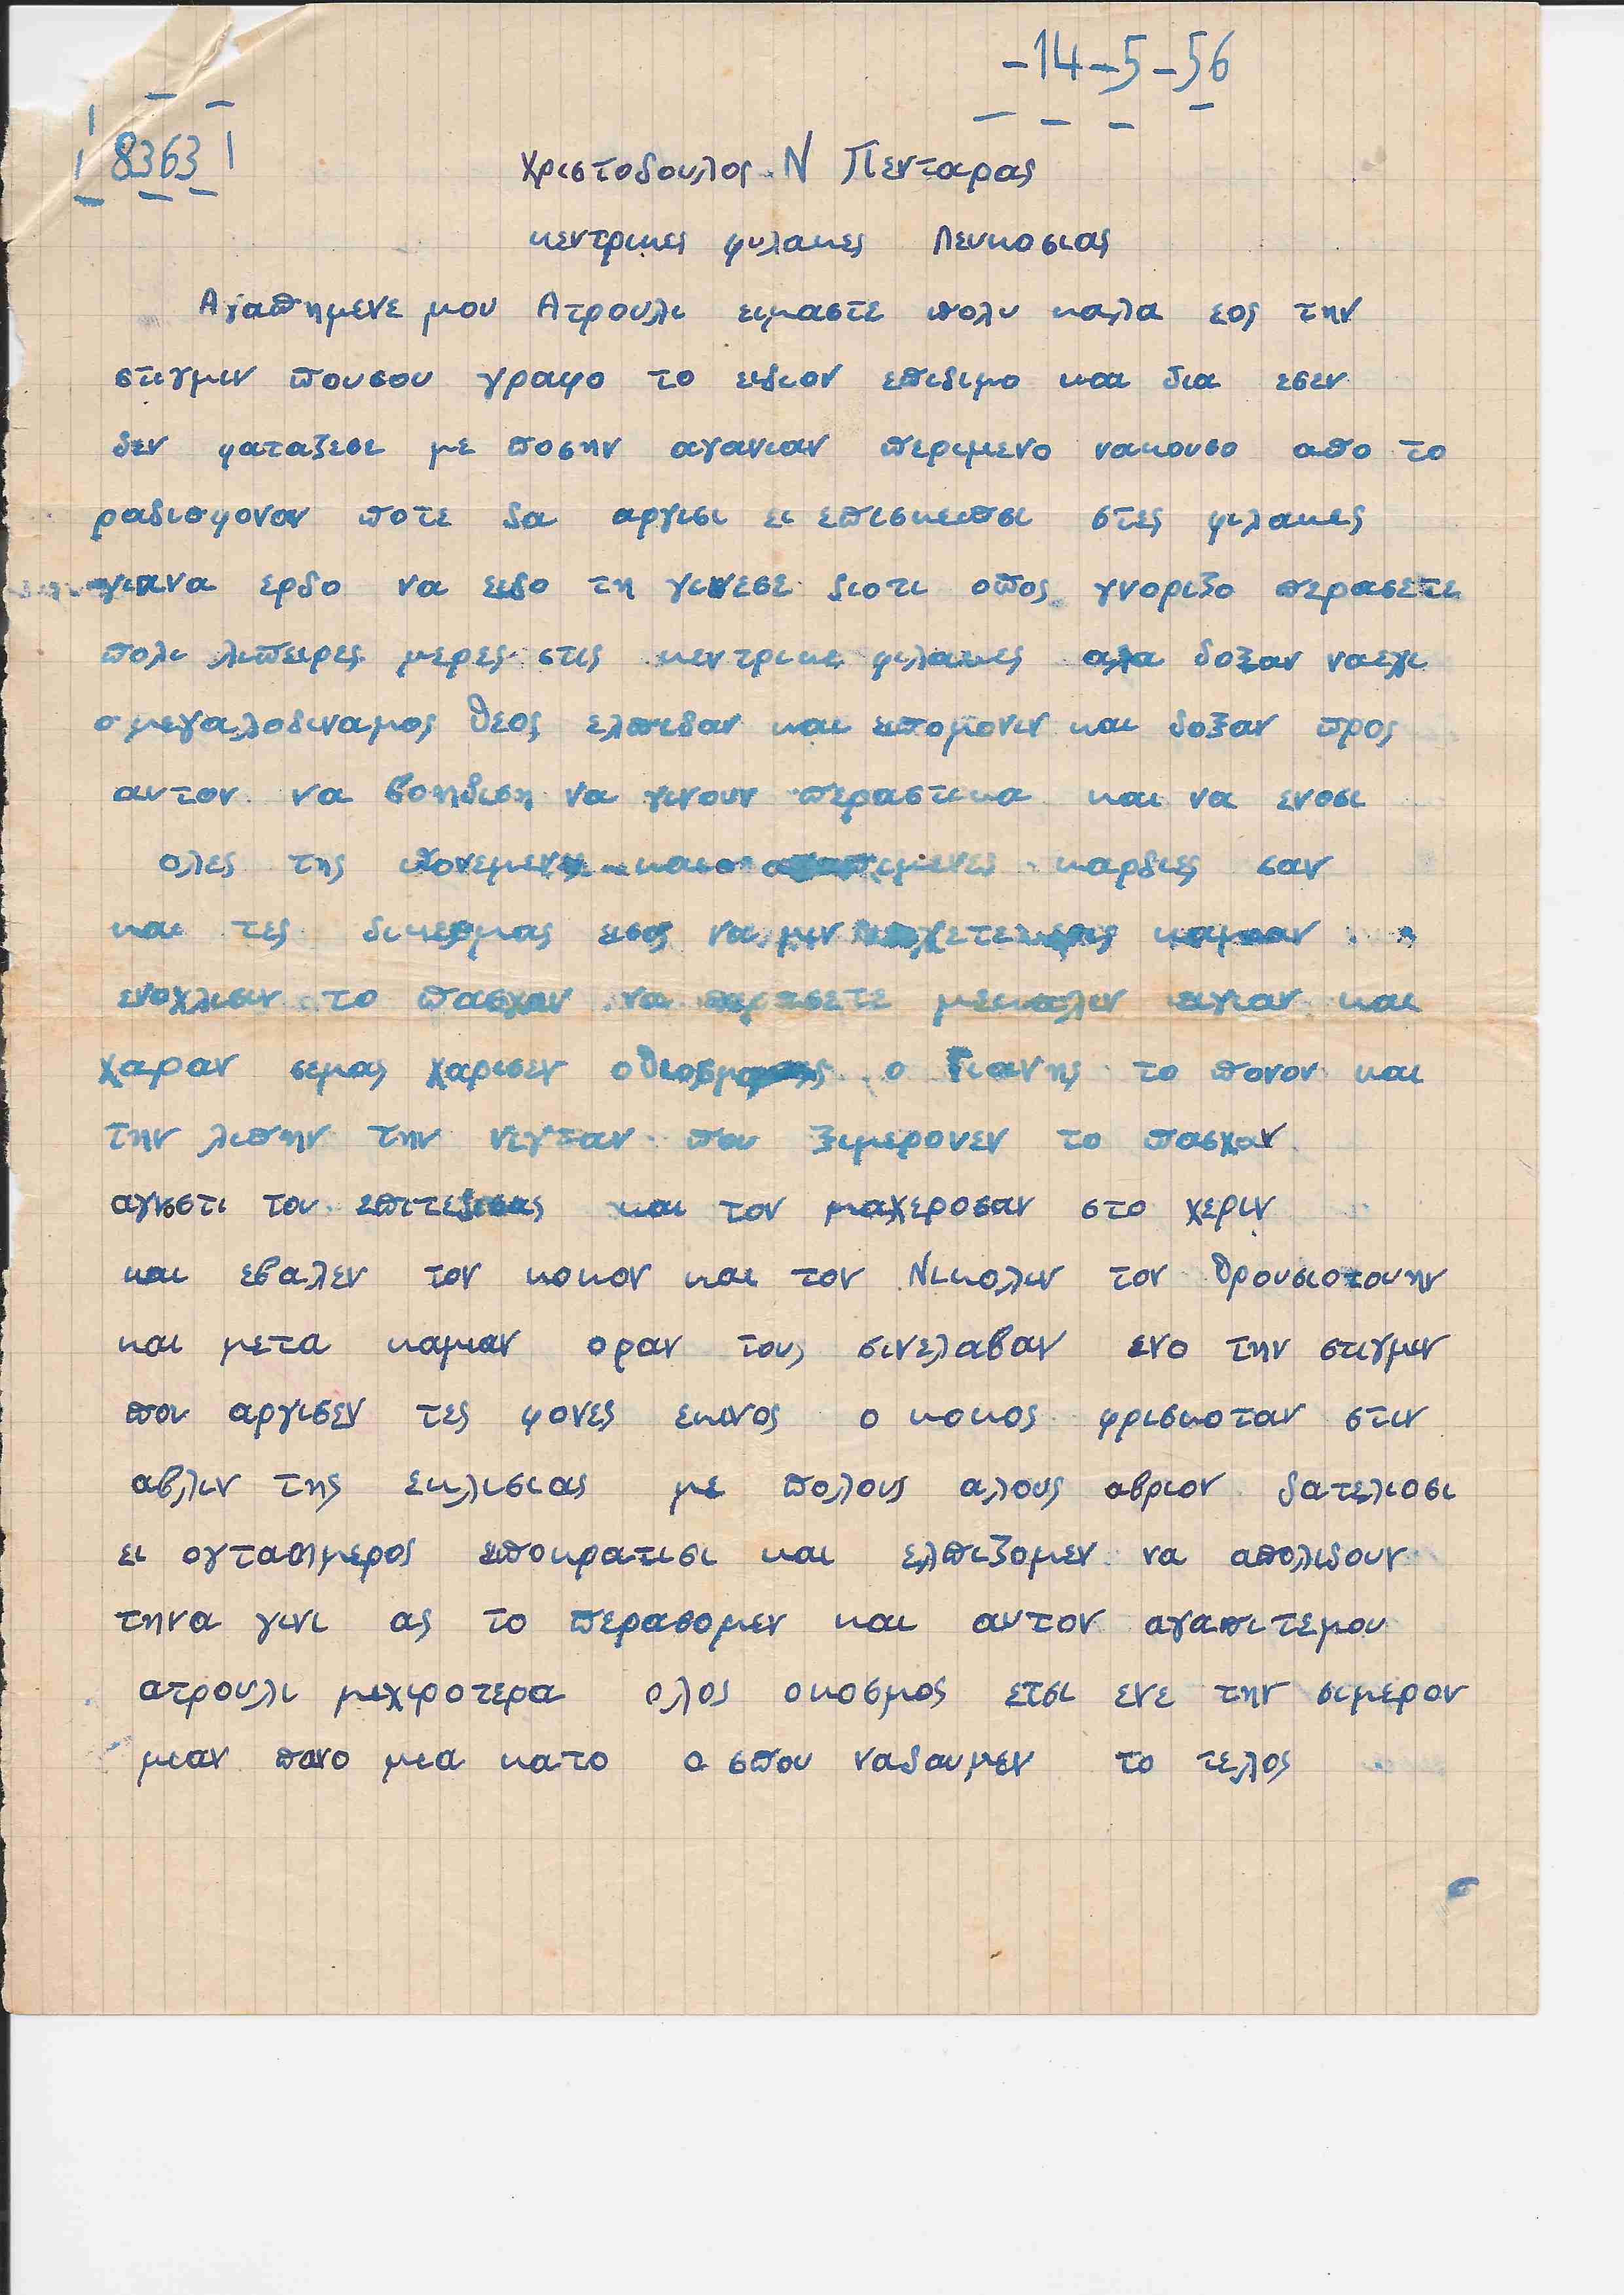 -14-5-56
8363
Χριστοδουλος Ν Πενταρας
κεντρικες φυλακες Λευκοσιας
Αγαπημενε μου Ατρουλι ειμαστε πολυ καλα εος την
στιγμιν πουσου γραφο το ειδιον επιδιμο και δια εσεν
δεν φαταζεσε με ποσην αγονιαν περιμενο νακουσο απο το
ραδιοφονον ποτε δα αργισι ει επισκειπσι στες φιλακες
γιανα ερδο να ειδο τη γινεσε διοτι οπος γνοριζο περασετε
πολι λιπειρες μερες στις κεντρικε φιλακες αλα δοξαν ναεχι
ο μεγαλοδιναμος θεος ελπιδαν και ειπομονιν και δοξαν προς
αυτον να βοηδιση να γινουν περαστικα και να ενοσι
ολες της πονεμενες και καρδιες σαν
και τες δικεσμας εσας να μιν καμιαν
ενοχλισιν το πασχαν να περασετε μεκαλιν ειγιαν και
χαραν σεμας χαρισεν οθεοσμας ο Γιανης το πονον και
την λιπην την νιχταν που ξιμερονεν το πασχαν
αγνοστι του επιτεδισας και τον μαχεροσαν στο χεριν
και εβαλεν τον κοκον και τον Νικολιν τον θρουσιοτουην
και μετα καμιαν οραν τους σινελαβαν ενο την στιγμιν
που αργισεν τες φονες εκινος ο κοκος φρισκοταν στιν
αβλιν της εκλισιας με πολους αλους αβριον δατελιοσι
ει οχταημερος ειποκρατισι και ελπιζομεν να απολιδουν
τηνα γινι ας το περασομεν και αυτον αγαπιτεμου
ατρουλι μιχιροτερα ολος οκοσμος ετσι ενε την σιμερον
μιαν πανο μια κατο ο σπου ναδουμεν το τελος